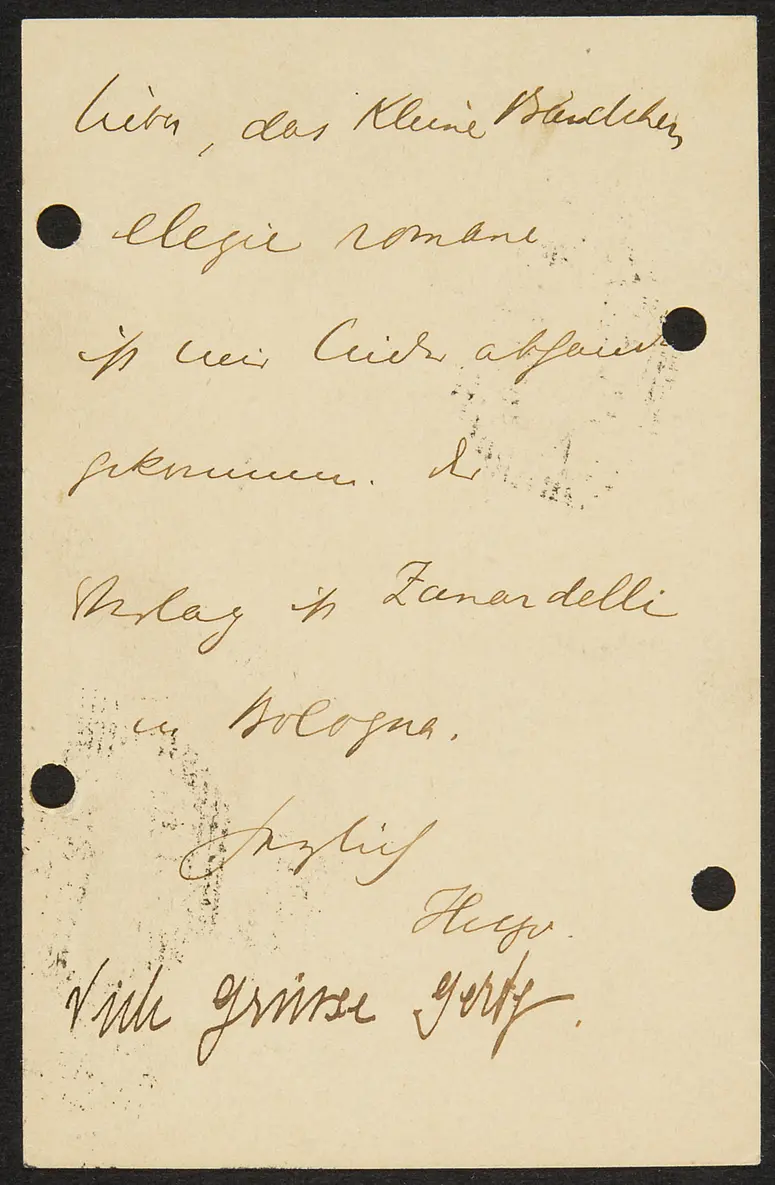 lieber, das kleine Bändchen
elegie romane
ist mir leider abhand
gekommen. der
Verlag ist Zanardelli
in Bologna.
Herzlich
Hugo.
Viele Grüsse Gerty.